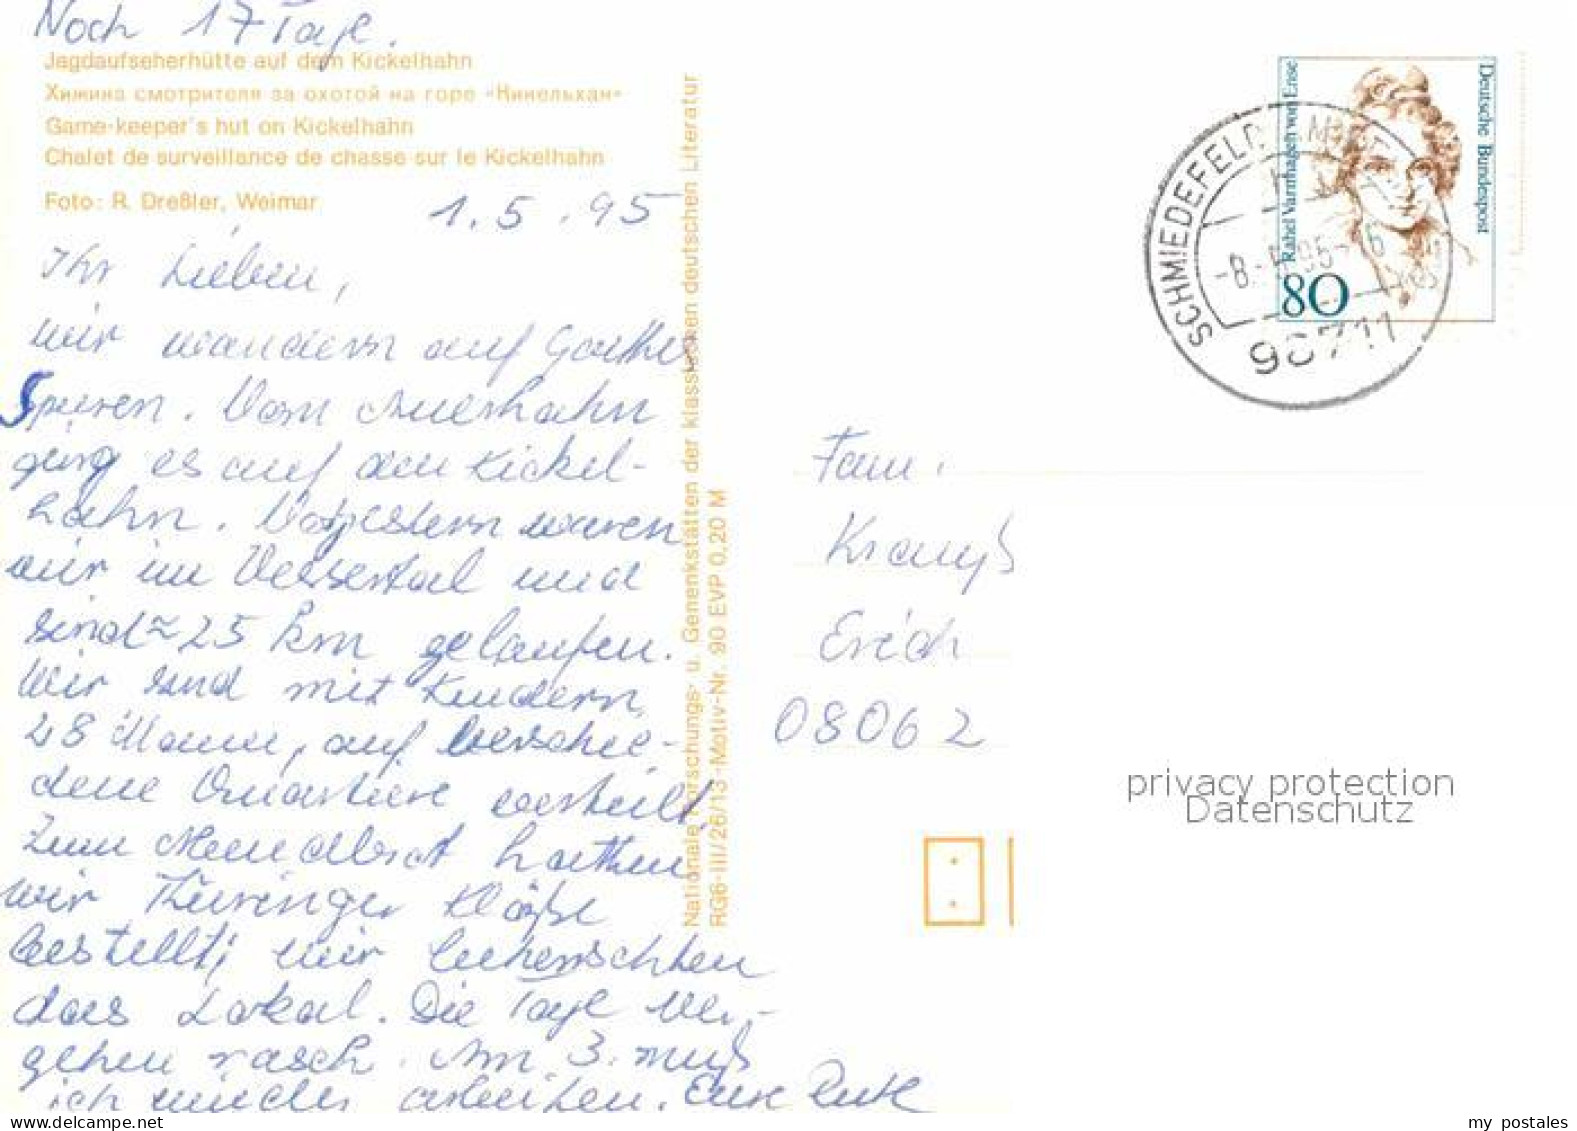 Noch 17 Tage.
Jagdaufseherhütte auf dem Kickelhahn
Хижина смотрителя за охотой на горе «Кикельхан»
Game-keeper's hut on Kickelhahn
Chalet de surveillance de chasse sur le Kickelhahn
Foto: R. Dreßler, Weimar
1.5.95
Ihr Lieben,
wir wandern auf Goethes
Spuren. Vom Auerhahn
ging es auf den Kickel-
hahn. Vorgestern waren
wir im Vessertal und
sind ≈ 25 km gelaufen.
Wir sind mit Kindern
48 Mann, auf verschie-
dene Quartiere verteilt.
Zum Abendbrot hatten
wir Thüringer Klöße
bestellt, wir beherrschten
das Lokal. Die Tage ver-
gehen rasch. Am 3. muß
ich wieder arbeiten. Eure Ruth
Nationale Forschungs- u. Gedenkstätten der klassischen deutschen Literatur
RG6-III/26/13-Motiv-Nr. 90 EVP 0,20 M
Rahel Varnhagen von Ense
Deutsche Bundespost
80
SCHMIEDEFELD
-8. 95-16
98711
Fam.
Krauß
Erich
08062
privacy protection
Datenschutz
my postales